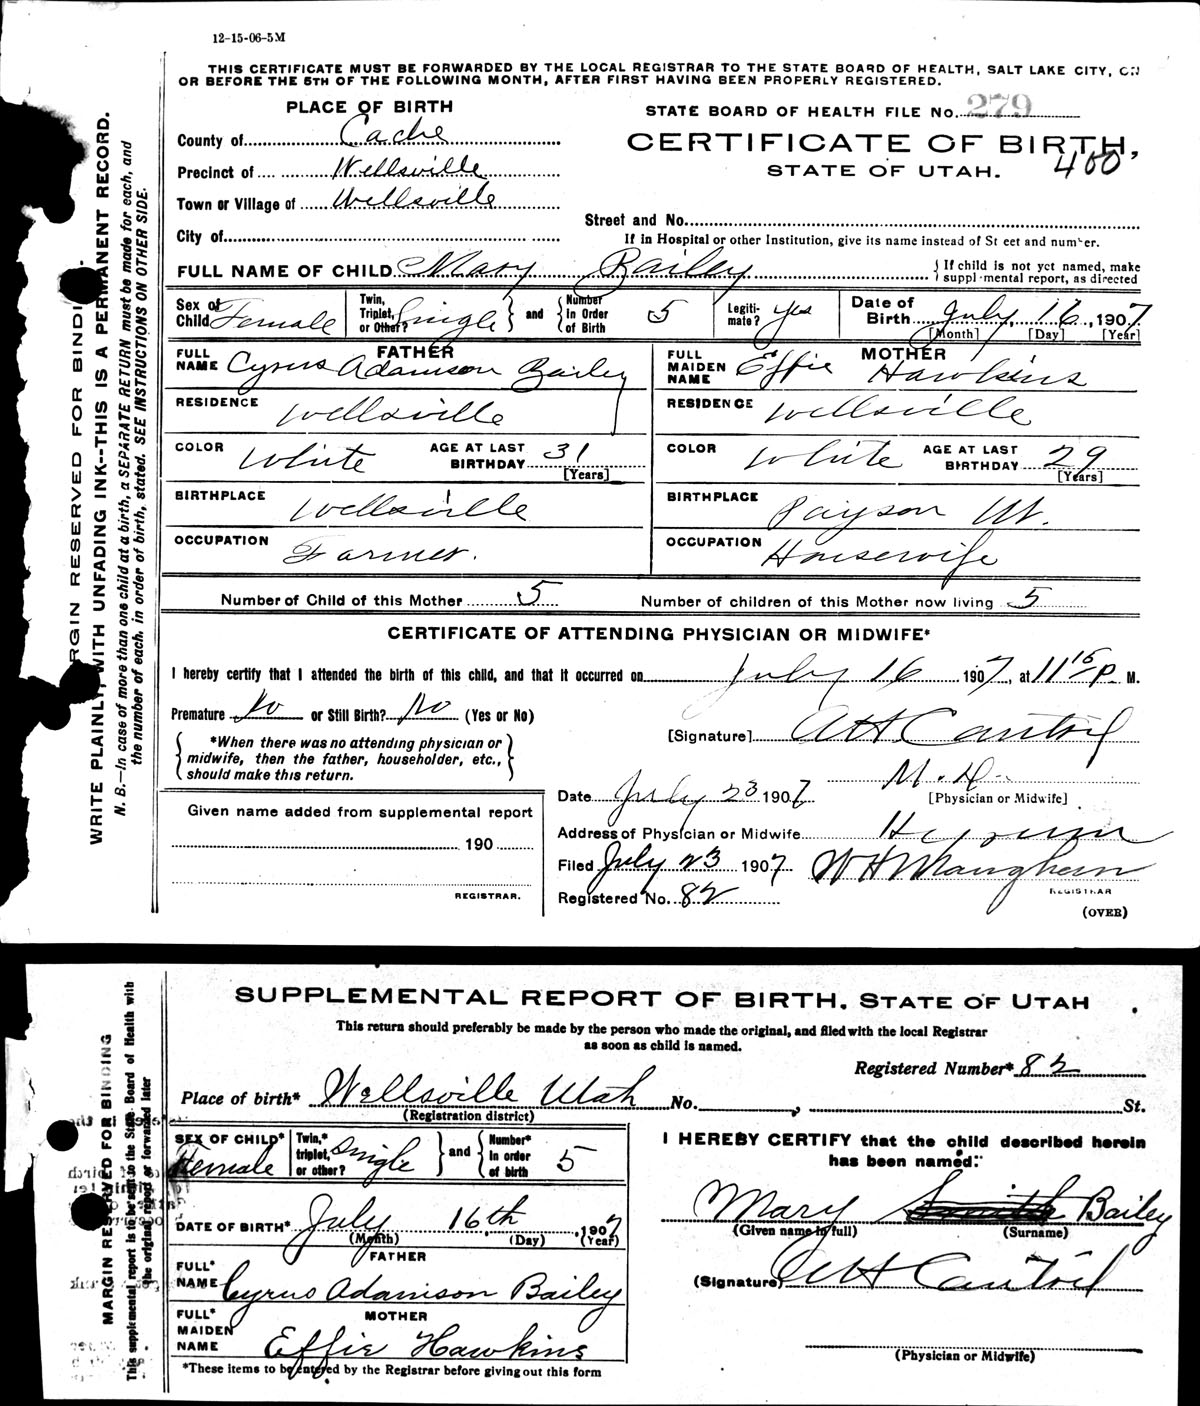 12-15-06-5M
THIS CERTIFICATE MUST BE FORWARDED BY THE LOCAL REGISTRAR TO THE STATE BOARD OF HEALTH, SALT LAKE CITY, ON
OR BEFORE THE 5TH OF THE FOLLOWING MONTH, AFTER FIRST HAVING BEEN PROPERLY REGISTERED.
PLACE OF BIRTH
STATE BOARD OF HEALTH FILE No. 279
County of Cache
CERTIFICATE OF BIRTH,
400
Precinct of Wellsville
STATE OF UTAH.
Town or Village of Wellsville
Street and No.
City of
If in Hospital or other Institution, give its name instead of St eet and number.
FULL NAME OF CHILD Mary Bailey
{ If child is not yet named, make
suppl mental report, as directed
Sex of Child Female
Twin, Triplet, or Other? Single } and { Number In Order of Birth 5
Legiti-mate? Yes
Date of Birth July, 16, 1907
[Month] [Day] [Year]
FATHER
FULL NAME Cyrus Adamson Bailey
MOTHER
FULL MAIDEN NAME Effie Hawkins
RESIDENCE Wellsville
RESIDENCE Wellsville
COLOR White AGE AT LAST BIRTHDAY 31 [Years]
COLOR White AGE AT LAST BIRTHDAY 29 [Years]
BIRTHPLACE Wellsville
BIRTHPLACE Payson Ut.
OCCUPATION Farmer.
OCCUPATION Housewife
Number of Child of this Mother 5 Number of children of this Mother now living 5
CERTIFICATE OF ATTENDING PHYSICIAN OR MIDWIFE*
I hereby certify that I attended the birth of this child, and that it occurred on July 16 1907, at 11 15 P. M.
Premature No or Still Birth? No (Yes or No)
[Signature]
*When there was no attending physician or
midwife, then the father, householder, etc.,
should make this return.
M.D.
[Physician or Midwife]
Date July 23 1907
Given name added from supplemental report
190
REGISTRAR.
Address of Physician or Midwife Hyrum
Filed July 23 1907 W H Maughan
REGISTRAR
Registered No. 82
(OVER)
MARGIN RESERVED FOR BINDI
WRITE PLAINLY WITH UNFADING INK--THIS IS A PERMANENT RECORD.
N. B.--In case of more than one child at a birth, a SEPARATE RETURN must be made for each, and
the number of each, in order of birth, stated. SEE INSTRUCTIONS ON OTHER SIDE.
SUPPLEMENTAL REPORT OF BIRTH. STATE OF UTAH
This return should preferably be made by the person who made the original, and filed with the local Registrar
as soon as child is named.
Registered Number* 82
Place of birth* Wellsville Utah No. , St.
(Registration district)
SEX OF CHILD* Female
Twin,* triplet, or other? Single } and { Number* in order of birth 5
I HEREBY CERTIFY that the child described herein
has been named:
DATE OF BIRTH* July 16th, 1907
(Month) (Day) (Year)
Mary Smith Bailey
(Given name in full) (Surname)
FATHER
FULL* NAME Cyrus Adamson Bailey
(Signature)
MOTHER
FULL* MAIDEN NAME Effie Hawkins
(Physician or Midwife)
*These items to be entered by the Registrar before giving out this form
MARGIN RESERVED FOR BINDING
This supplemental report is to be sent to the State Board of Health with
the original report or forwarded later